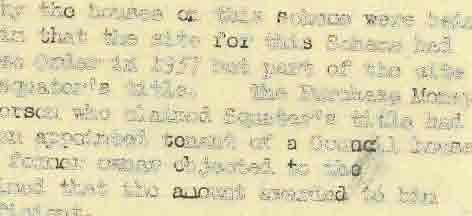 why the houses on this scheme were being
in that the site for this Scheme had
se Order in 1957 but part of the site
squator's title. The Purchase Money
erson who claimed Squator's title had
en appointed tenant of a Council house
former owner objected to the
ined that the amount awarded to him